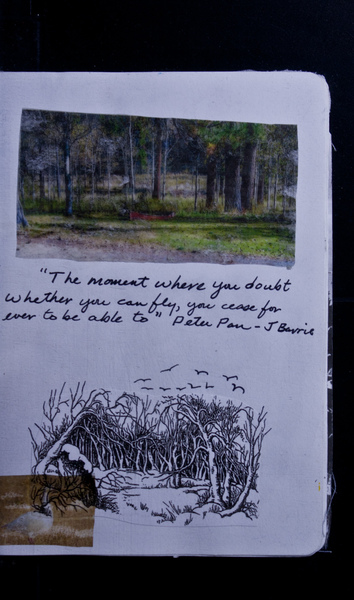 "The moment where you doubt
whether you can fly, you cease for
ever to be able to" Peter Pan - J Barrie